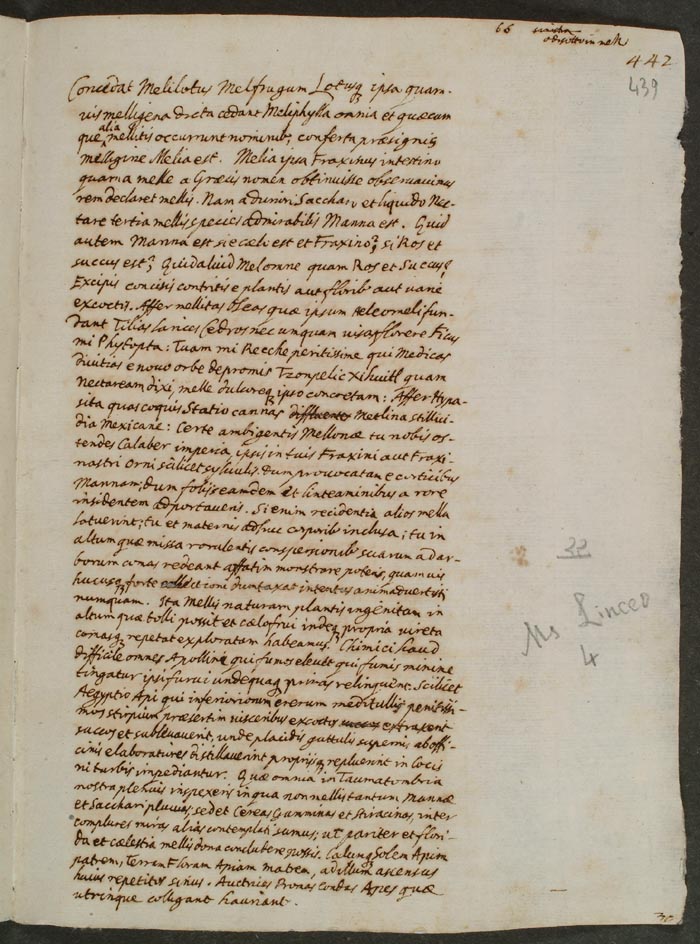 66 sinistra
442
439
Concedat Melilotus Melfrugum Lotusq ipsa quam-
vis melligena dicta cedant Meliphylla omnia et quæcum
que alia mellitis occurrunt nominib; conferta præsignis
melligine Melia est. Melia ipsa Fraxinus intestino
quarna melle a Græcis nomen obtinuisse observavimus
rem declaret mellis. Nam a duriori Saccharo et liquido Nec-
tare tertia mellis species admirabilis Manna est. Quid
autem Manna est sie cæli est et Fraxino? si Ros et
succus est? Quid aliud Mel omne quam Ros et Succus?
Excipis concisis contritis e plantis aut florib aut vane
excoctis. Affer mellitas Oleas quæ ipsum Heleomeli fun-
dant Tilias Larices Cedros nec umquam visas florere Ficus
mi Phytopta: Tuam mi Recche peritissime qui Medicas
divitias e novo orbe depromis Tzonpelic Xihuitl quam
Nectaream dixi, melle dulcoreq ipso concretam: Affer Hypa-
sita quas coquis Statio cannas Metlina stillivi-
dia Mexicane: Certe ambigentis Mellonæ tu nobis os-
tendes Calaber impera, ipsis in tuis Fraxini aut Fraxi-
nastri Orni scilicet sylvulis. dum provocatam e corticibus
Mannam; dum folijs eamdem et linteaminibus a rore
insidentem adportaveris. Si enim recidentia alios mella
latuerint; tu et maternis adhuc corporib inclusa; tu in
altum quæ missa rorulentis conspersionib suarum ad ar-
borum comas redeant affatim monstrare potens, quamvis
hucusq forte collectioni duntaxat intentus animadvertisti
numquam. Ita Mellis naturam plantis ingenitam in
altum quæ tolli possit et cælo frui indeq propria vireta
comasq repetat exploratam habeamus. Chimici haud
difficile omnes Apolline qui fumos elevet qui fumis minime
tingatur ipsi furui undequaq privas relinquent. Scilicet
Aegyptio Api qui inferiorum rerum medituliis penitissi-
mos stirpium præsertim visceribus excoctos
succos et sublevaverit, unde placidis guttulis supernis ab offi-
cinis elaboratores distillaverint proprijsq repluerint in locis
ni turbis impediantur. Quæ omnia in Taumatombria
nostra plenius inspexeris in qua non mellis tantum Mannæ
et Sacchari pluvias; sed et Cereas Gramminas et Stiracinas, inter
complures miras alias contemplati sumus; ut pariter et flori-
da et cælestia mellis dona concludere possis. Cælumq Solem Apim
patrem, Terram Floram Apiam matrem, ad illum ascensus
huius repetitos sinus. Auctrices Pronas condas Apes quæ
utrinque colligant hauriant.
32
Ms Linceo
4